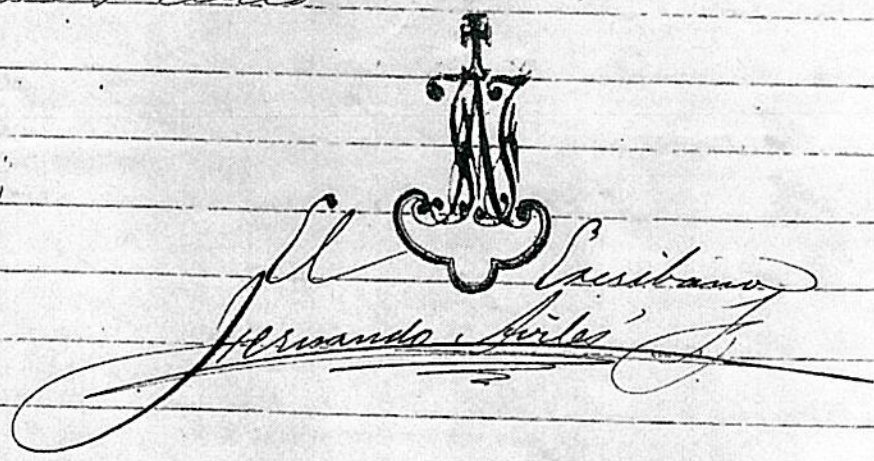 El Escribano
Hernando Avilés